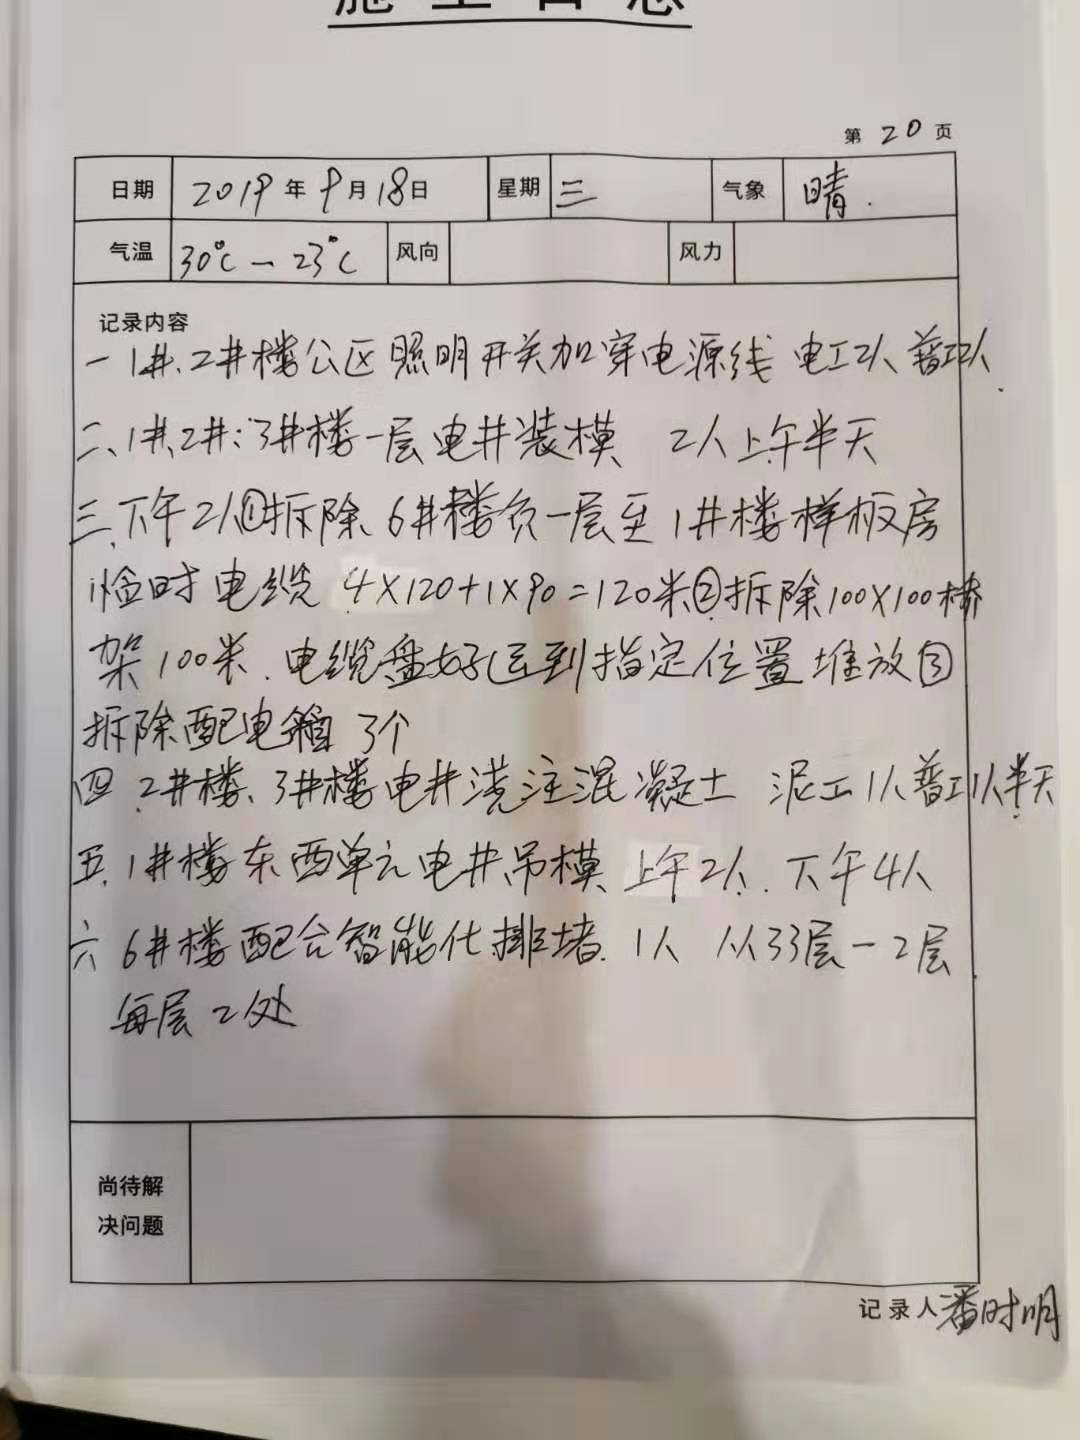 施工日志
第 20 页
日期 2019年9月18日 星期 三 气象 晴.
气温 30℃-23℃ 风向 风力
记录内容
一 1#、2#楼公区照明开关加穿电源线 电工2人 普工2人.
二、1#、2#、3#楼一层电井装模 2人上午半天
三、下午2人①拆除6#楼负一层至1#楼样板房
临时电缆 4X120+1X90=120米②拆除100X100桥
架100米.电缆盘好运到指定位置堆放③
拆除配电箱 3个
四、2#楼、3#楼电井浇注混凝土 泥工1人 普工1人半天
五、1#楼东西单元电井吊模 上午2人、下午4人
六 6#楼配合智能化排堵 1人 从33层-2层
每层2处
尚待解
决问题
记录人 潘时明